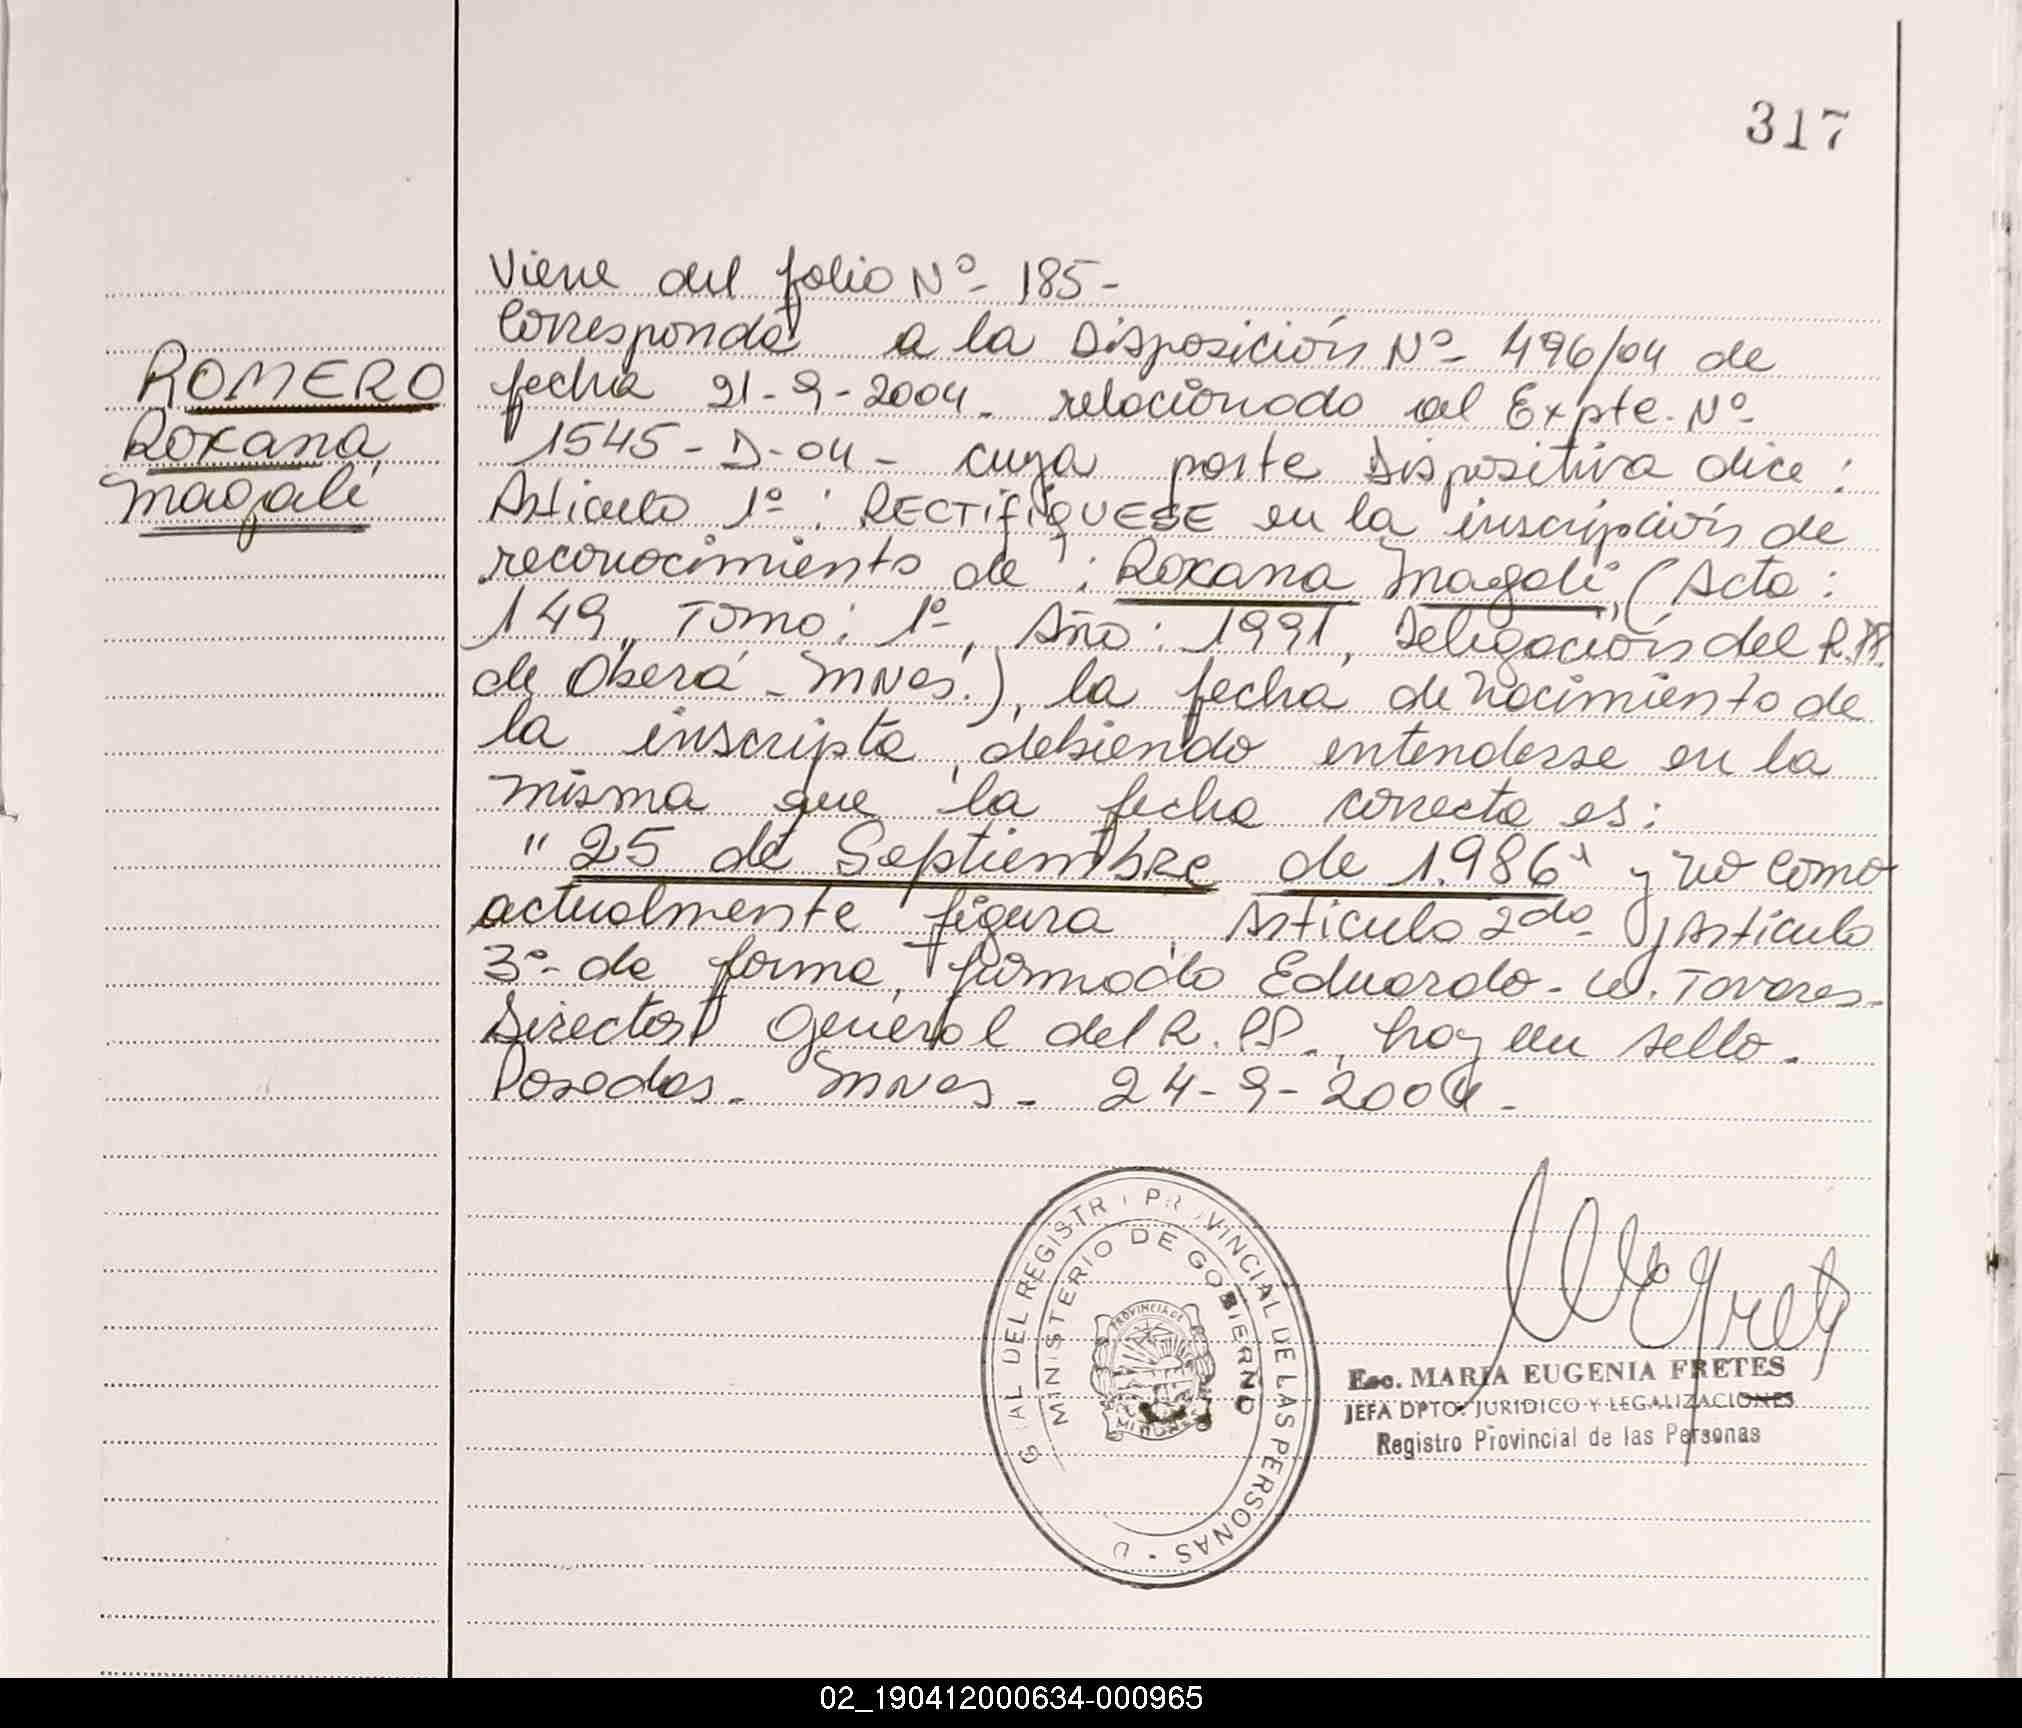 317
Viene del folio Nº- 185-
Corresponde a la Disposición Nº- 496/04 de
ROMERO
fecha 21-9-2004. relacionado al Expte. Nº-
Roxana
1545-D-04- cuya parte Dispositiva dice:
Magalí
Artículo 1º: RECTIFIQUESE en la inscripción de
reconocimiento de: Roxana Magalí, (Acta:
149, Tomo: 1º, Año: 1991, Delegación del R.PP.
de Oberá - Mnes.), la fecha de nacimiento de
la inscripta, debiendo entenderse en la
misma que la fecha correcta es:
"25 de Septiembre de 1.986" y no como
actualmente figura. Artículo 2do- y Artículo
3º- de forma, firmado Eduardo- W. Tavares-
Director General del R. PP., hay un sello.
Posadas. Mnes. 24-9-2004.
G AL DEL REGISTR PR VINCIAL DE LAS PERSONAS - D
MINISTERIO DE GOBIERNO
PROVINCIA DE
Esc. MARIA EUGENIA FRETES
JEFA DPTO. JURIDICO Y LEGALIZACIONES
Registro Provincial de las Personas
02_190412000634-000965